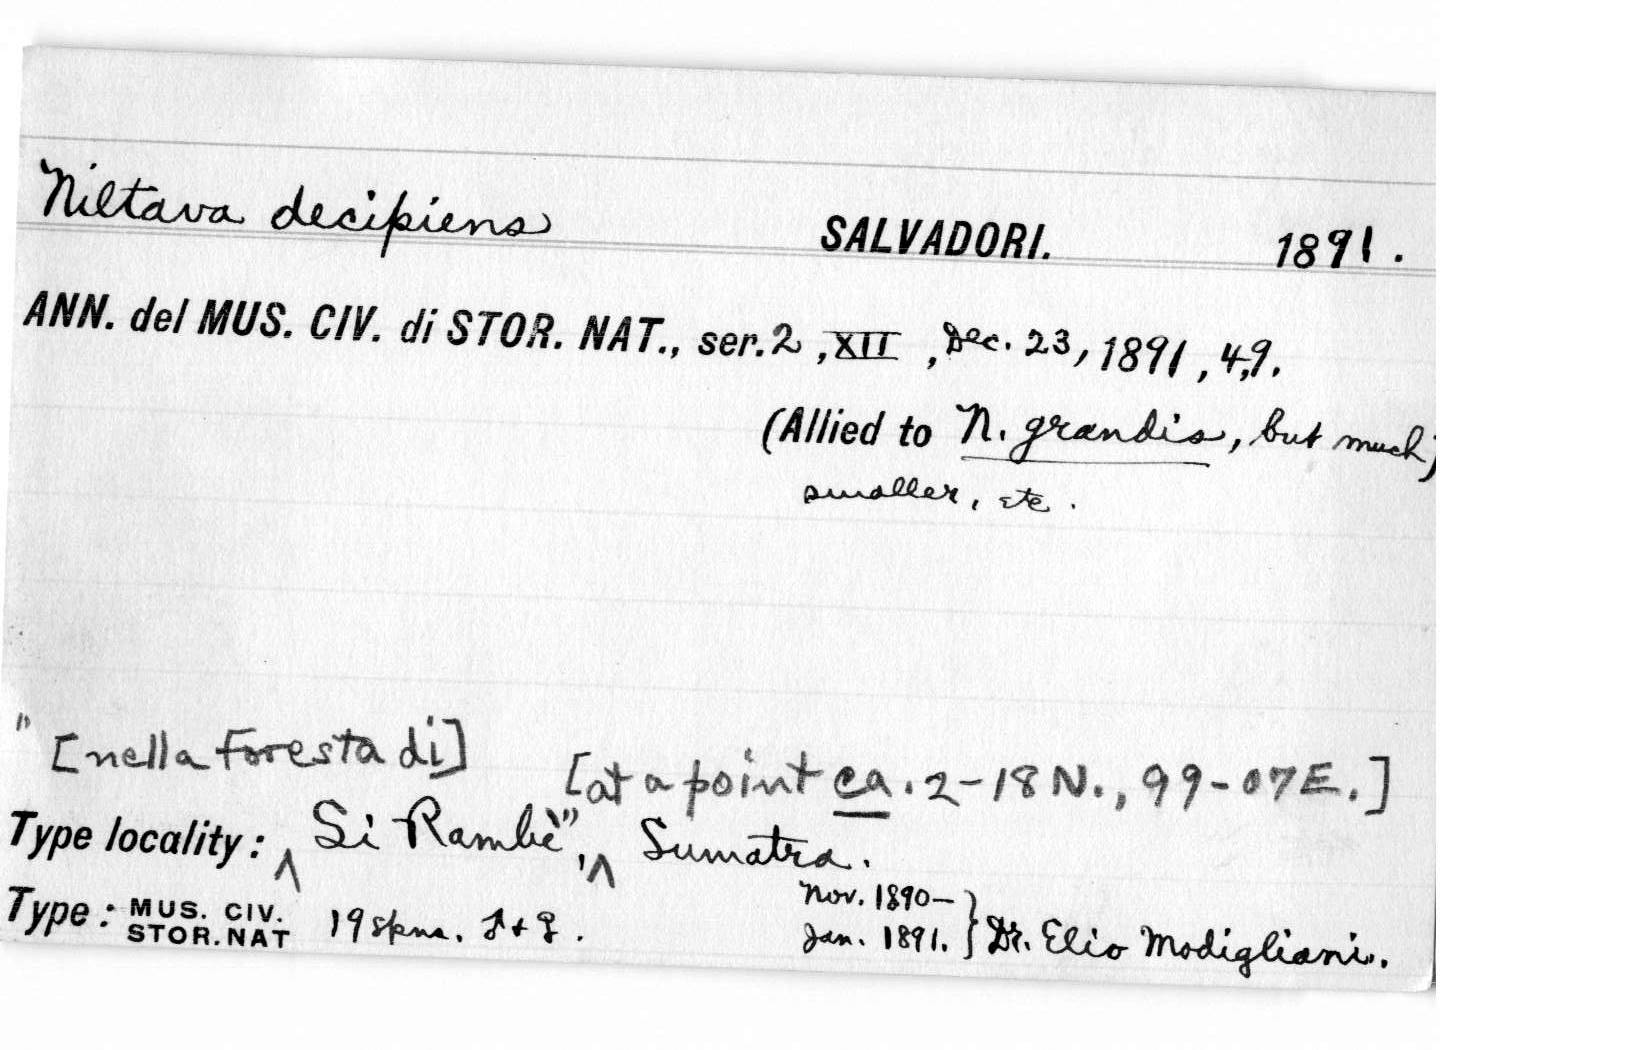 Niltava decipiens SALVADORI. 1891.
ANN. del MUS. CIV. di STOR. NAT., ser.2, XII, Dec. 23, 1891, 49.
(Allied to N. grandis, but much)
smaller, etc.
" [nella Foresta di] [at a point ca. 2-18 N., 99-07 E.]
Type locality: ^ Si Rambè", ^ Sumatra.
Type: MUS. CIV. STOR. NAT 19 spns. ♂ + ♀. Nov. 1890– Jan. 1891. } Dr. Elio Modigliani.